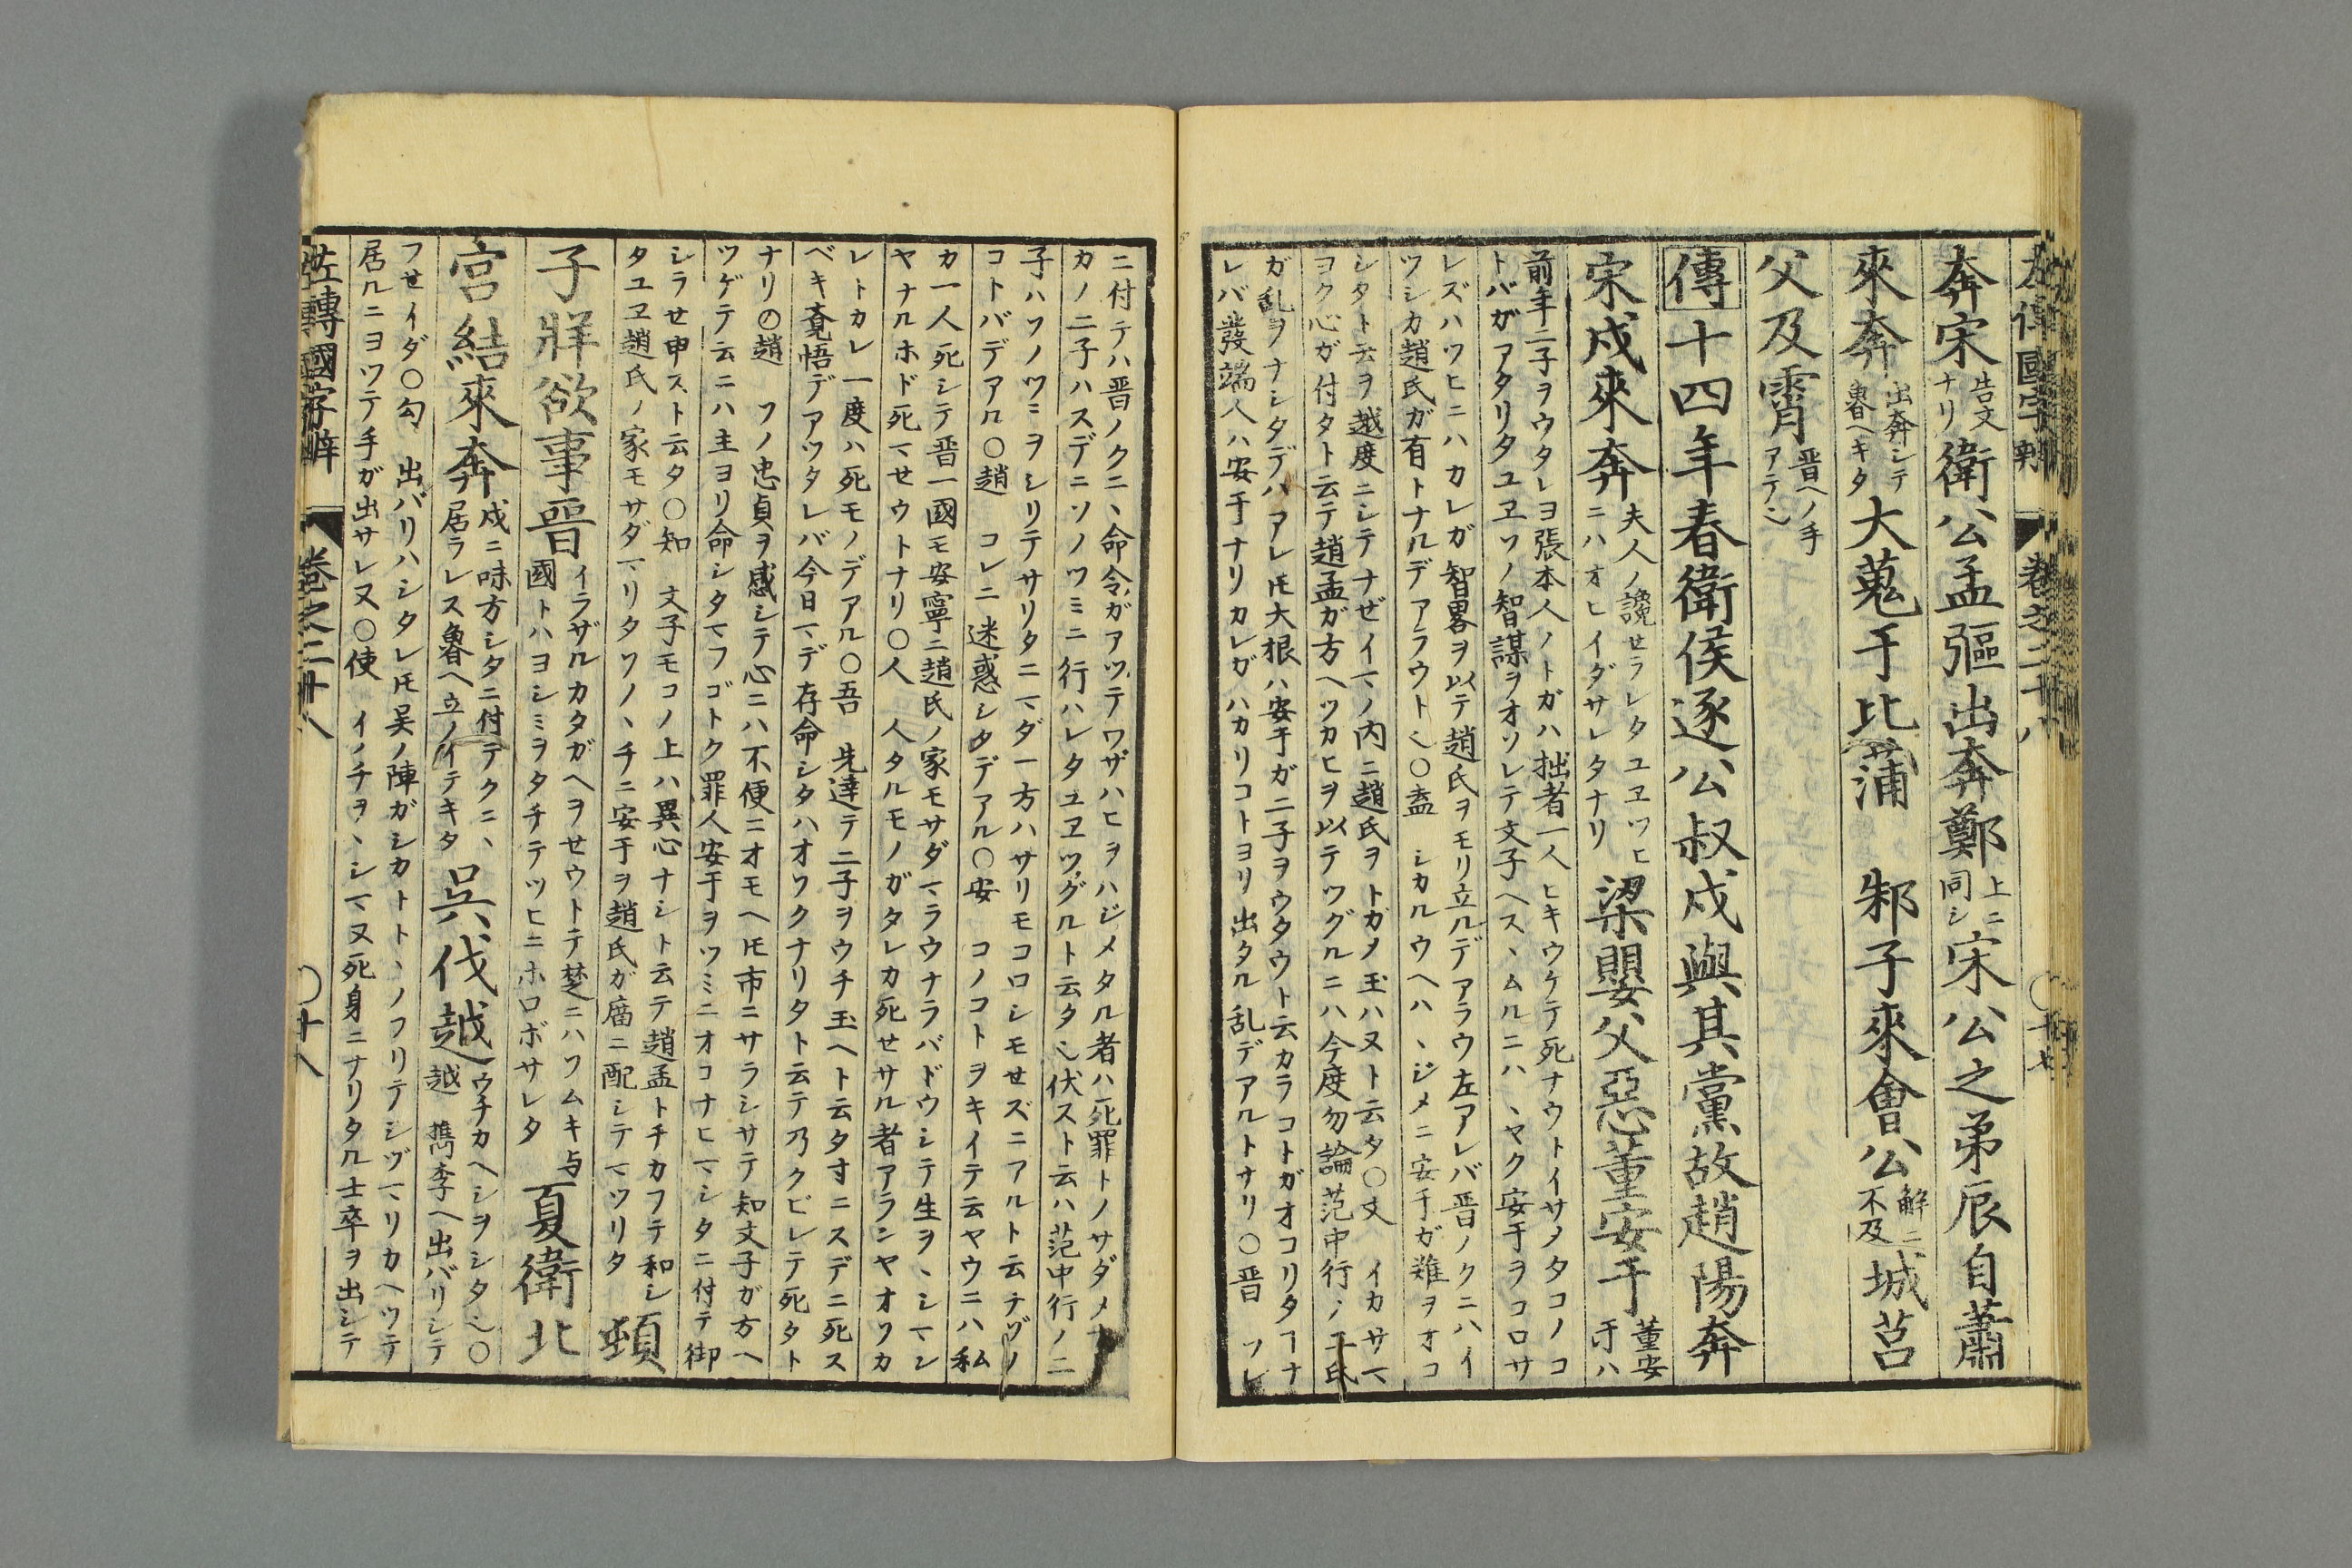 左傳國字觧 卷之二十八 〇十七
奔宋告文ナリ衛公孟彄出奔鄭上ニ同シ宋公之弟辰自蕭
來奔出奔シテ魯ヘキタ大蒐于比蒲 邾子來會公解ニ不及城莒
父及霄晋ヘノ手アテ也
傳十四年春衛侯逐公叔戍與其黨故趙陽奔
宋戍來奔夫人ノ讒セラレタユヱツヒニハオヒイダサレタナリ梁嬰父惡董安于董安于ハ
前年二子ヲウタレヨ張本人ノトガハ拙者一人ヒキウケテ死ナウトイサメタコノコ
トバガアタリタユヱソノ智謀ヲオソレテ文子ヘス、ムルニハ、ヤク安于ヲコロサ
レズハツヒニハカレガ智畧ヲ以テ趙氏ヲモリ立ルデアラウ左アレバ晋ノクニハイ
ツシカ趙氏ガ有トナルデアラウト也〇盍 シカルウヘハ、ジメニ安于ガ難ヲオコ
シタト云ヲ越度ニシテナゼイマノ内ニ趙氏ヲトガメ玉ハヌト云タ〇文 イカサマ
ヨク心ガ付タト云テ趙孟ガ方ヘツカヒヲ以テツグルニハ今度勿論范中行ノ二氏
ガ乱ヲナシタデハアレ𪜈大根ハ安于ガ二子ヲウタウト云カラコトガオコリタヿナ
レバ發端人ハ安于ナリカレガハカリコトヨリ出タル乱デアルトナリ〇晋 ソレ
ニ付テハ晋ノクニ、命令ガアツテワザハヒヲハジメタル者ハ死罪トノサダメナ
カノ二子ハスデニソノツミニ行ハレタユヱツグルト云タ也伏スト云ハ范中行ノ二
子ハソノツミヲシリテサリタニマダ一方ハサリモコロシモせズニアルト云ナゾノ
コトバデアル〇趙 コレニ迷惑シタデアル〇安 コノコトヲキイテ云ヤウニハ私
カ一人死シテ晋一國モ安寧ニ趙氏ノ家モサダマラウナラバドウシテ生ヲ、シマン
ヤナルホド死マせウトナリ〇人 人タルモノガタレカ死せサル者アランヤオソカ
レトカレ一度ハ死モノデアル〇吾 先達テ二子ヲウチ玉ヘト云タ寸ニスデニ死ス
ベキ覚悟デアツタレバ今日マデ存命シタハオソクナリタト云テ乃クビレテ死タト
ナリ〇趙 ソノ忠貞ヲ感シテ心ニハ不便ニオモヘ𪜈市ニサラシサテ知文子ガ方ヘ
ツゲテ云ニハ主ヨリ命シタマフゴトク罪人安于ヲツミニオコナヒマシタニ付テ御
シラせ申スト云タ〇知 文子モコノ上ハ異心ナシト云テ趙孟トチカフテ和シ
タユヱ趙氏ノ家モサダマリタソノ、チニ安于ヲ趙氏ガ廟ニ配シテマツリタ 頓
子牂欲事晋イラザルカタガヘヲせウトテ楚ニハソムキ与國トハヨシミヲタチテツヒニホロボサレタ夏衛北
宮結來奔戍ニ味方シタニ付テクニ、居ラレス魯ヘ立ノイテキタ呉伐越ウチカヘシヲシタ也〇越 檇李ヘ出バリシテ
フせイダ〇勾 出バリハシタレ𪜈呉ノ陣ガシカトト、ノフリテシヅマリカヘツテ
居ルニヨツテ手ガ出サレヌ〇使 イノチヲ、シマヌ死身ニナリタル士卒ヲ出シテ
左轉國字觧 卷之二十八 〇十八